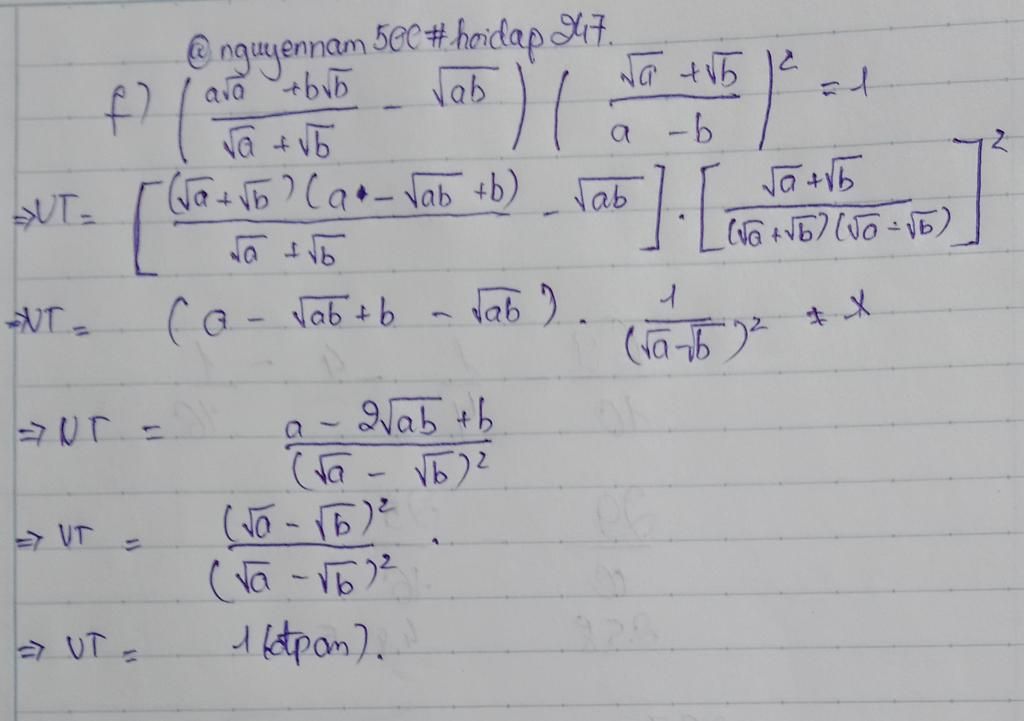 @nguyennam500#hoidap247.
f) ((a√a + b√b)/(√a + √b) - √ab) ((√a + √b)/(a - b))² = 1
⇒ VT = [((√a + √b)(a - √ab + b))/(√a + √b) - √ab] . [(√a + √b)/((√a + √b)(√a - √b))]²
⇒ VT = (a - √ab + b - √ab) . 1/(√a - √b)²
⇒ VT = (a - 2√ab + b)/(√a - √b)²
⇒ VT = (√a - √b)²/(√a - √b)² .
⇒ VT = 1 (đpcm).